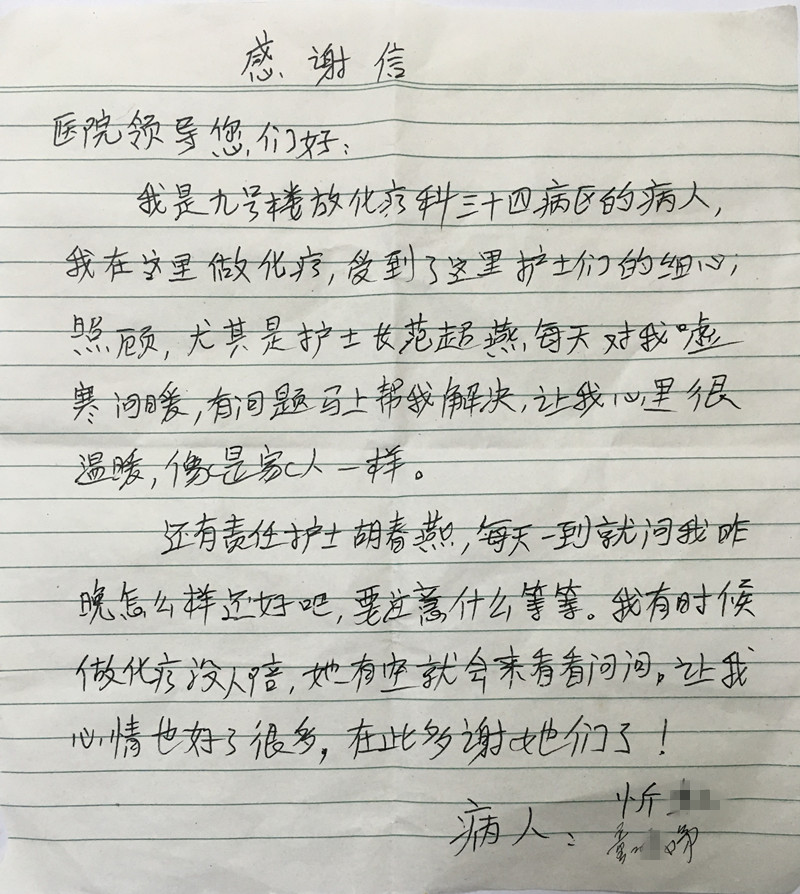 感谢信
医院领导您们好：
我是九号楼放化疗科三十四病区的病人，
我在这里做化疗，受到了这里护士们的细心
照顾，尤其是护士长范超燕，每天对我嘘
寒问暖，有问题马上帮我解决，让我心里很
温暖，像是家人一样。
还有责任护士胡春燕，每天一到就问我昨
晚怎么样还好吧，要注意什么等等。我有时候
做化疗没人陪，她有空就会来看看问问。让我
心情也好了很多，在此多谢她们了！
病人：忻